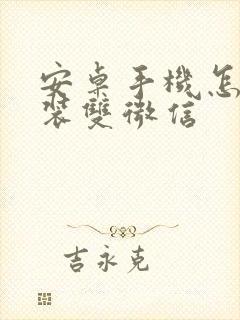 安桌手機怎
裝雙微信
吉永克